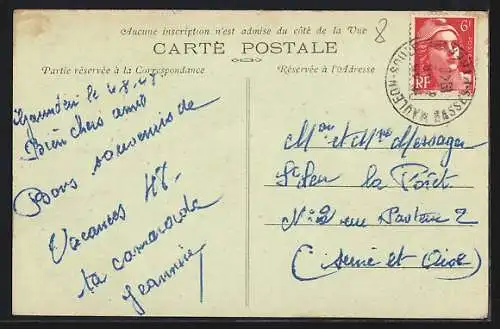 Aucune inscription n'est admise du côté de la Vue
8
CARTE POSTALE
Partie réservée à la Correspondance
Réservée à l'Adresse
6F
RF
MAULEON-SOULE
BASSES-
le 4-8-47
Bien chers amis
Bons souvenirs de
Vacances 47-
ta camarade
Jeannine
Mon et Mme Messager
St Leu la Forêt
N°2 rue Pasteur 2
(Seine et Oise)